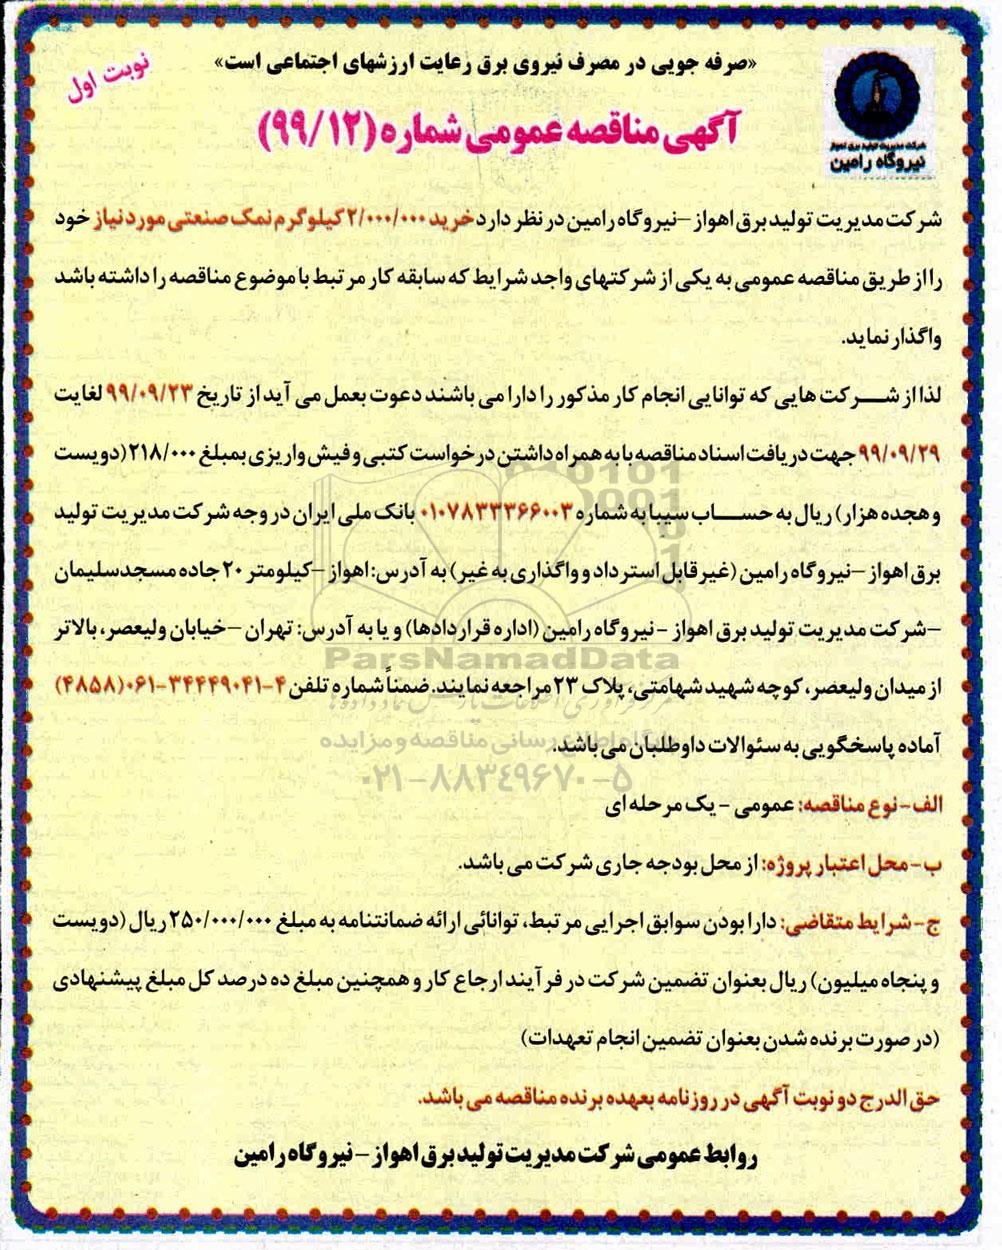 «صرفه جویی در مصرف نیروی برق رعایت ارزشهای اجتماعی است»
نوبت اول
آگهی مناقصه عمومی شماره (۹۹/۱۲)
شرکت مدیریت تولید برق اهواز
نیروگاه رامین
شرکت مدیریت تولید برق اهواز –نیروگاه رامین در نظر دارد خرید ۲/۰۰۰/۰۰۰ کیلوگرم نمک صنعتی مورد نیاز خود
را از طریق مناقصه عمومی به یکی از شرکتهای واجد شرایط که سابقه کار مرتبط با موضوع مناقصه را داشته باشد
واگذار نماید.
لذا از شرکت هایی که توانایی انجام کار مذکور را دارا می باشند دعوت بعمل می آید از تاریخ ۹۹/۰۹/۲۳ لغایت
۹۹/۰۹/۲۹ جهت دریافت اسناد مناقصه با به همراه داشتن درخواست کتبی و فیش واریزی بمبلغ ۲۱۸/۰۰۰ (دویست
و هجده هزار) ریال به حساب سیبا به شماره ۰۱۰۷۸۳۳۳۶۶۰۰۳ بانک ملی ایران در وجه شرکت مدیریت تولید
برق اهواز –نیروگاه رامین (غیر قابل استرداد و واگذاری به غیر) به آدرس: اهواز –کیلومتر ۲۰ جاده مسجدسلیمان
–شرکت مدیریت تولید برق اهواز –نیروگاه رامین (اداره قراردادها) و یا به آدرس: تهران –خیابان ولیعصر، بالاتر
از میدان ولیعصر، کوچه شهید شهامتی، پلاک ۲۳ مراجعه نمایند. ضمناً شماره تلفن ۴-۳۴۴۴۹۰۴۱-۰۶۱ (۴۸۵۸)
آماده پاسخگویی به سئوالات داوطلبان می باشد.
الف-نوع مناقصه: عمومی - یک مرحله ای
ب-محل اعتبار پروژه: از محل بودجه جاری شرکت می باشد.
ج-شرایط متقاضی: دارا بودن سوابق اجرایی مرتبط، توانائی ارائه ضمانتنامه به مبلغ ۲۵۰/۰۰۰/۰۰۰ ریال (دویست
و پنجاه میلیون) ریال بعنوان تضمین شرکت در فرآیند ارجاع کار و همچنین مبلغ ده درصد کل مبلغ پیشنهادی
(در صورت برنده شدن بعنوان تضمین انجام تعهدات)
حق الدرج دو نوبت آگهی در روزنامه بعهده برنده مناقصه می باشد.
روابط عمومی شرکت مدیریت تولید برق اهواز - نیروگاه رامین
ParsNamadData
پایگاه اطلاع رسانی مناقصه و مزایده
۰۲۱-۸۸۳۴۹۶۷۰-۵